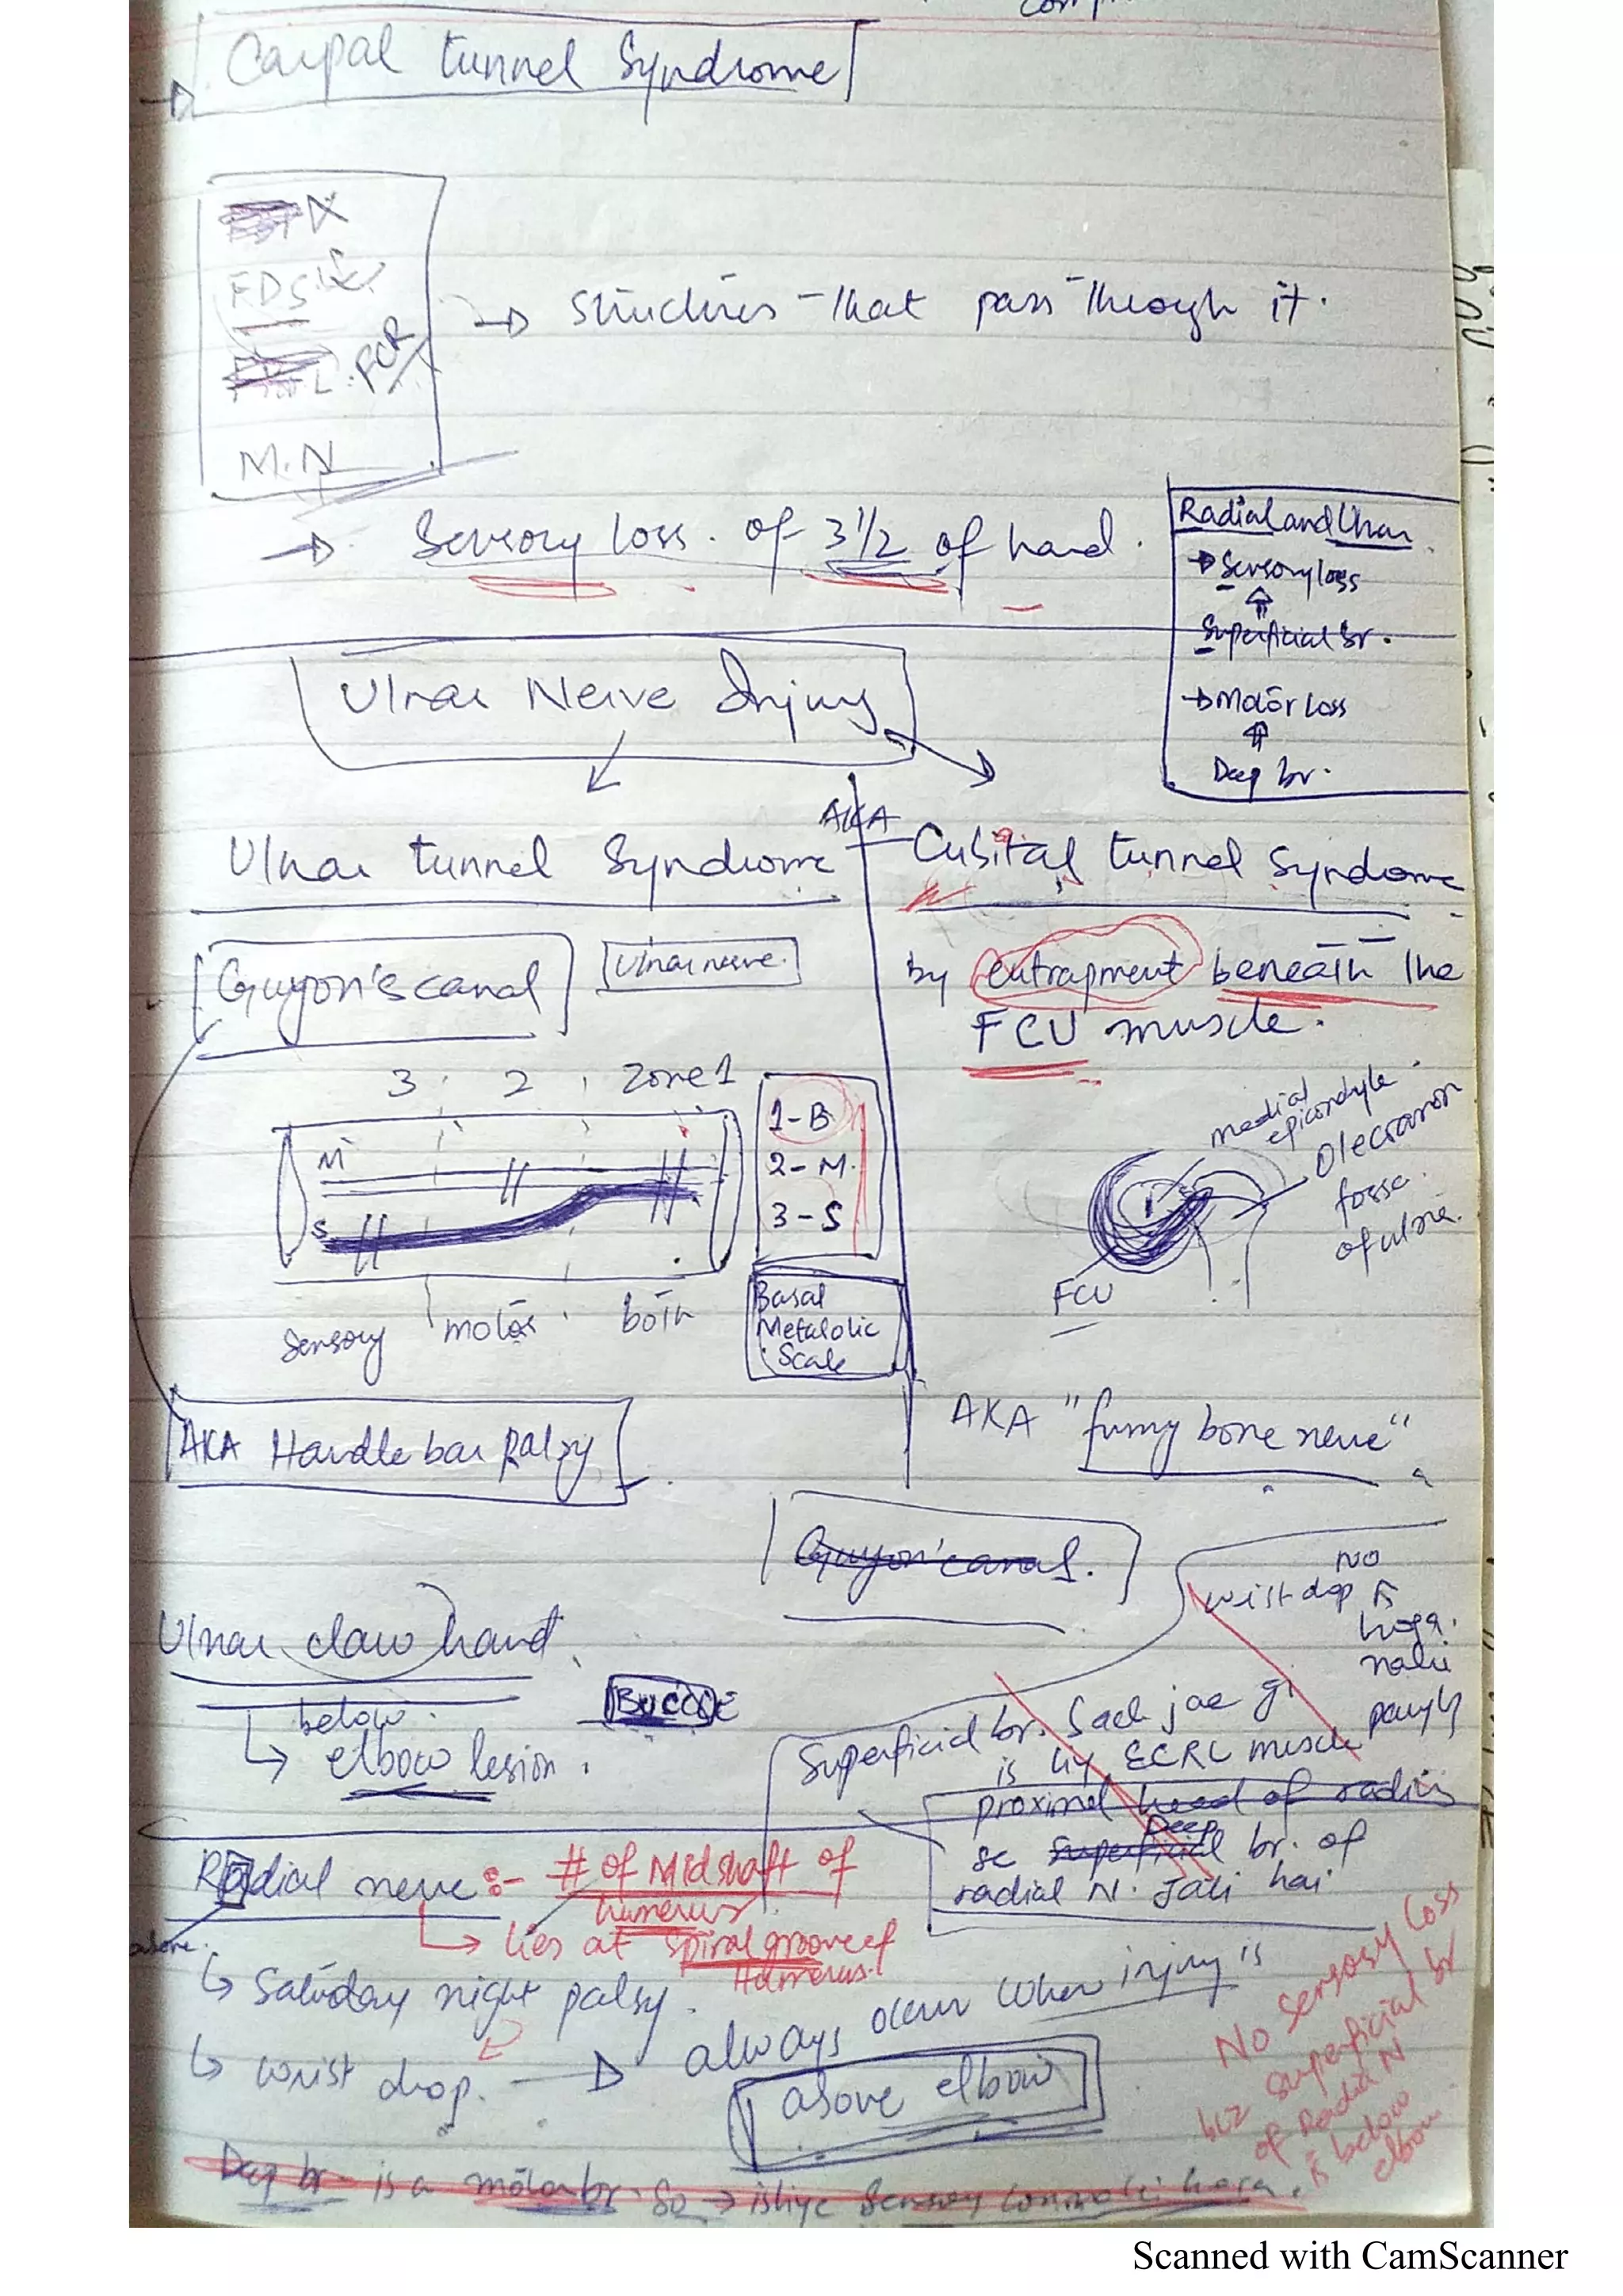 Carpal tunnel Syndrome
FDS
FCR
M.N
→ Structures that pass through it.
→ Sensory loss of 3 1/2 of hand.
Radial and Ulnar
→ Sensory loss
Superficial br.
→ Motor loss
Deep br.
Ulnar Nerve Injury
Ulnar tunnel Syndrome
AKA
Cubital tunnel Syndrome
Guyon's canal
Ulnar nerve.
by entrapment beneath the
FCU muscle.
3 2 Zone 1
M
S
1-B
2-M.
3-S
Sensory motor both
Basal
Metabolic
Scale
medial
epicondyle.
Olecranon
fossa
of ulna.
FCU
AKA Handle bar palsy
AKA "funny bone nerve"
Guyon's canal.
Ulnar claw hand.
below
elbow lesion.
NO
wrist drop
hoga.
Superficial br. Sath jae gi
ECRL muscle
proximal head of radius
se superficial Deep br. of
radial N. Jati hai
Radial nerve :- # of Midshaft of
humerus
above.
lies at spiral groove of
Humerus.
Saturday night palsy.
wrist drop. → always occur when injury is
above elbow
No sensory loss
buz superficial br
of Radial N
is below
elbow
Deep br. is a motor br. So → isliye Sensory
Scanned with CamScanner